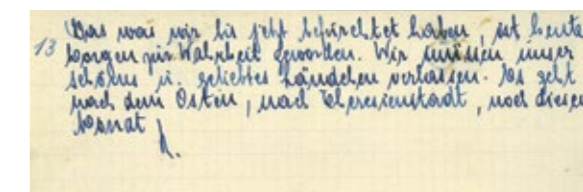 13 Das was wir bis jetzt befürchtet haben, ist heute
Morgen zur Wahrheit geworden. Wir müssen unser
schönes u. geliebtes Ländchen verlassen. Es geht
nach dem Osten, nach Theresienstadt, noch diesen
Monat